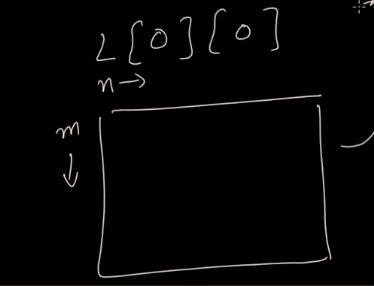 L[0][0]
n→
m
↓